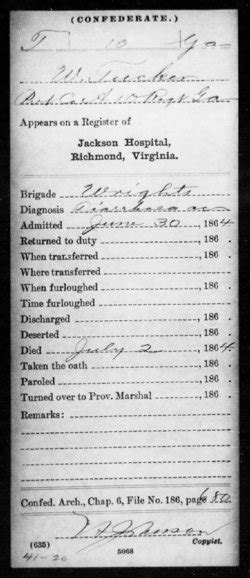 (CONFEDERATE.)
T 10 Ga
W. Tucker
Pvt. Co. 10 Regt Ga
Appears on a Register of
Jackson Hospital,
Richmond, Virginia.
Brigade Wrights
Diagnosis Diarrhoea ac
Admitted June 30, 1864
Returned to duty , 186 .
When transferred , 186 .
Where transferred , 186 .
When furloughed , 186 .
Time furloughed , 186 .
Discharged , 186 .
Deserted , 186 .
Died July 2, 1864
Taken the oath , 186 .
Paroled , 186 .
Turned over to Prov. Marshal , 186 .
Remarks:
Confed. Arch., Chap. 6, File No. 186, page 680
Johnson
(635) Copyist.
41-20 5068